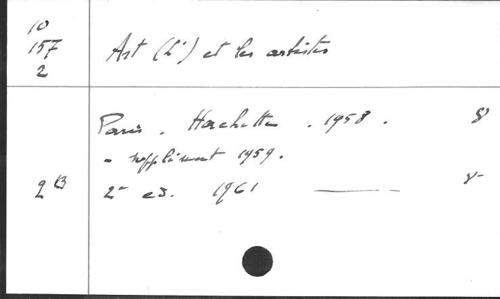 10
157
2
Art (L') et les artistes
Paris. Hachette. 1958. 8
- supplément 1959.
2 B 2e ed. 1961 8